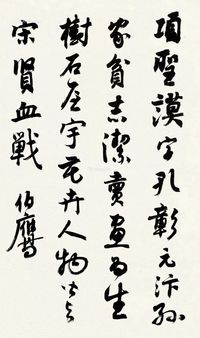 項聖謨字孔彰元汴孫
家貧志潔賣畫為生
樹石屋宇花卉人物皆與
宋賢血戰 伯鷹